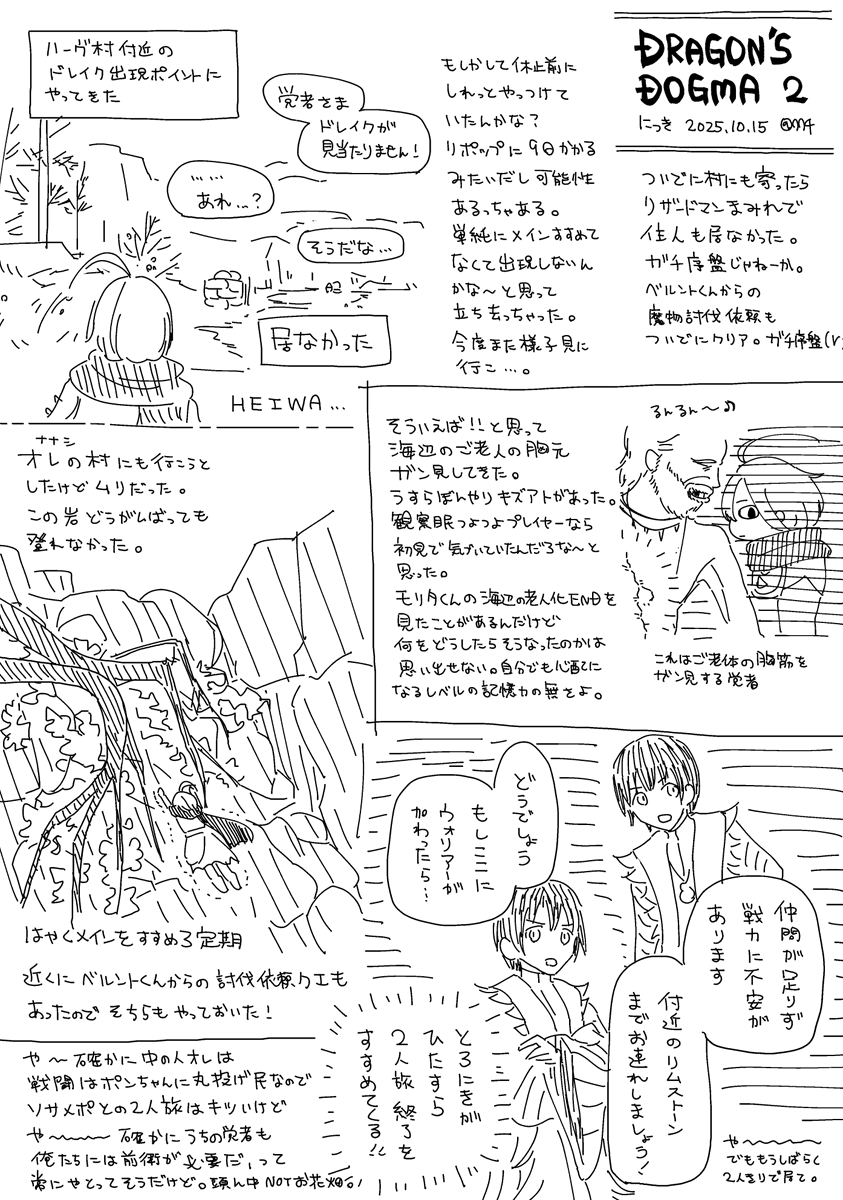 DRAGON'S
DOGMA 2
にっき 2025.10.15 @M4
ハーヴ村付近の
ドレイク出現ポイントに
やってきた
覚者さま
ドレイクが
見当たりません!
……
あれ…?
そうだな…
居なかった
HEIWA…
もしかして休止前に
しれっとやっつけて
いたんかな?
リポップに9日かかる
みたいだし可能性
あるっちゃある。
単純にメインすすめて
なくて出現しないん
かな〜と思って
立ち去っちゃった。
今度また様子見に
行こ…。
ついでに村にも寄ったら
リザードマンまみれで
住人も居なかった。
ガチ序盤じゃねーか。
ベルントくんからの
魔物討伐依頼も
ついでにクリア。ガチ序盤(
ナナシ
オレの村にも行こうと
したけどムリだった。
この岩どうがんばっても
登れなかった。
はやくメインをすすめろ定期
近くにベルントくんからの討伐依頼クエも
あったのでそちらもやっておいた!
そういえば!!と思って
海辺のご老人の胸元
ガン見してきた。
うすらぼんやりキズアトがあった。
観察眼つよつよプレイヤーなら
初見で気づいていたんだろな〜と
思った。
モリタくんの海辺の老人化ENDを
見たことがあるんだけど
何をどうしたらそうなったのかは
思い出せない。自分でも心配に
なるレベルの記憶力の無さよ。
るんるん〜♪
これはご老体の胸筋を
ガン見する覚者
仲間が足りず
戦力に不安が
あります
付近のリムストーン
までお連れしましょう!
どうでしょう
もしここに
ウォリアーが
加わったら…
とろにきが
ひたすら
2人旅終了を
すすめてくる!!
や〜確かに中の人オレは
戦闘はポンちゃんに丸投げ民なので
ソサメポとの2人旅はキツいけど
や〜〜〜確かにうちの覚者も
俺たちには前衛が必要だ、って
常にやとってそうだけど。頭ん中NOTお花畑。
や〜〜〜〜
でももうしばらく
2人きりで居て。